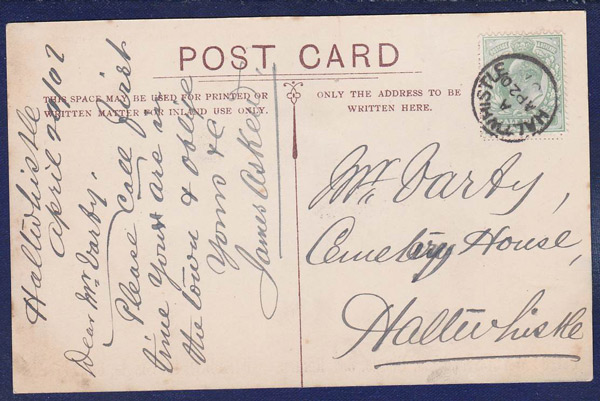 POST CARD
THIS SPACE MAY BE USED FOR PRINTED OR
WRITTEN MATTER FOR INLAND USE ONLY.
ONLY THE ADDRESS TO BE
WRITTEN HERE.
HALTWHISTLE
A
AP 20
Haltwhistle
April
Dear Mr Darby,
Please Call first
time Your are in
the town & oblge
Yours &c
James Askew
Mr. Darby,
Cemetry House,
Haltwhistle